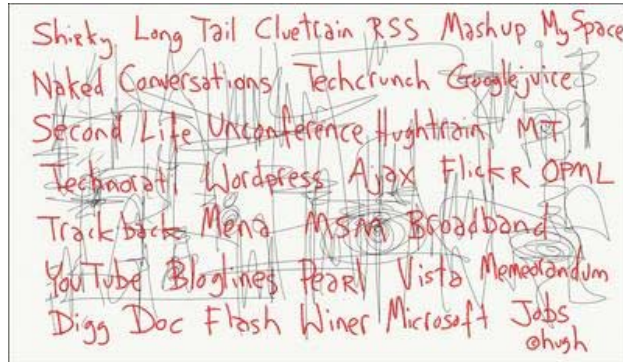 Shirky Long Tail Cluetrain RSS Mashup MySpace
Naked Conversations Techcrunch Googlejuice
Second Life Unconference Hughtrain MIT
Technorati Wordpress Ajax FlickR OPML
Trackback Mena MSM Broadband
YouTube Bloglines Pearl Vista Memeorandum
Digg Doc Flash Winer Microsoft Jobs
@hugh